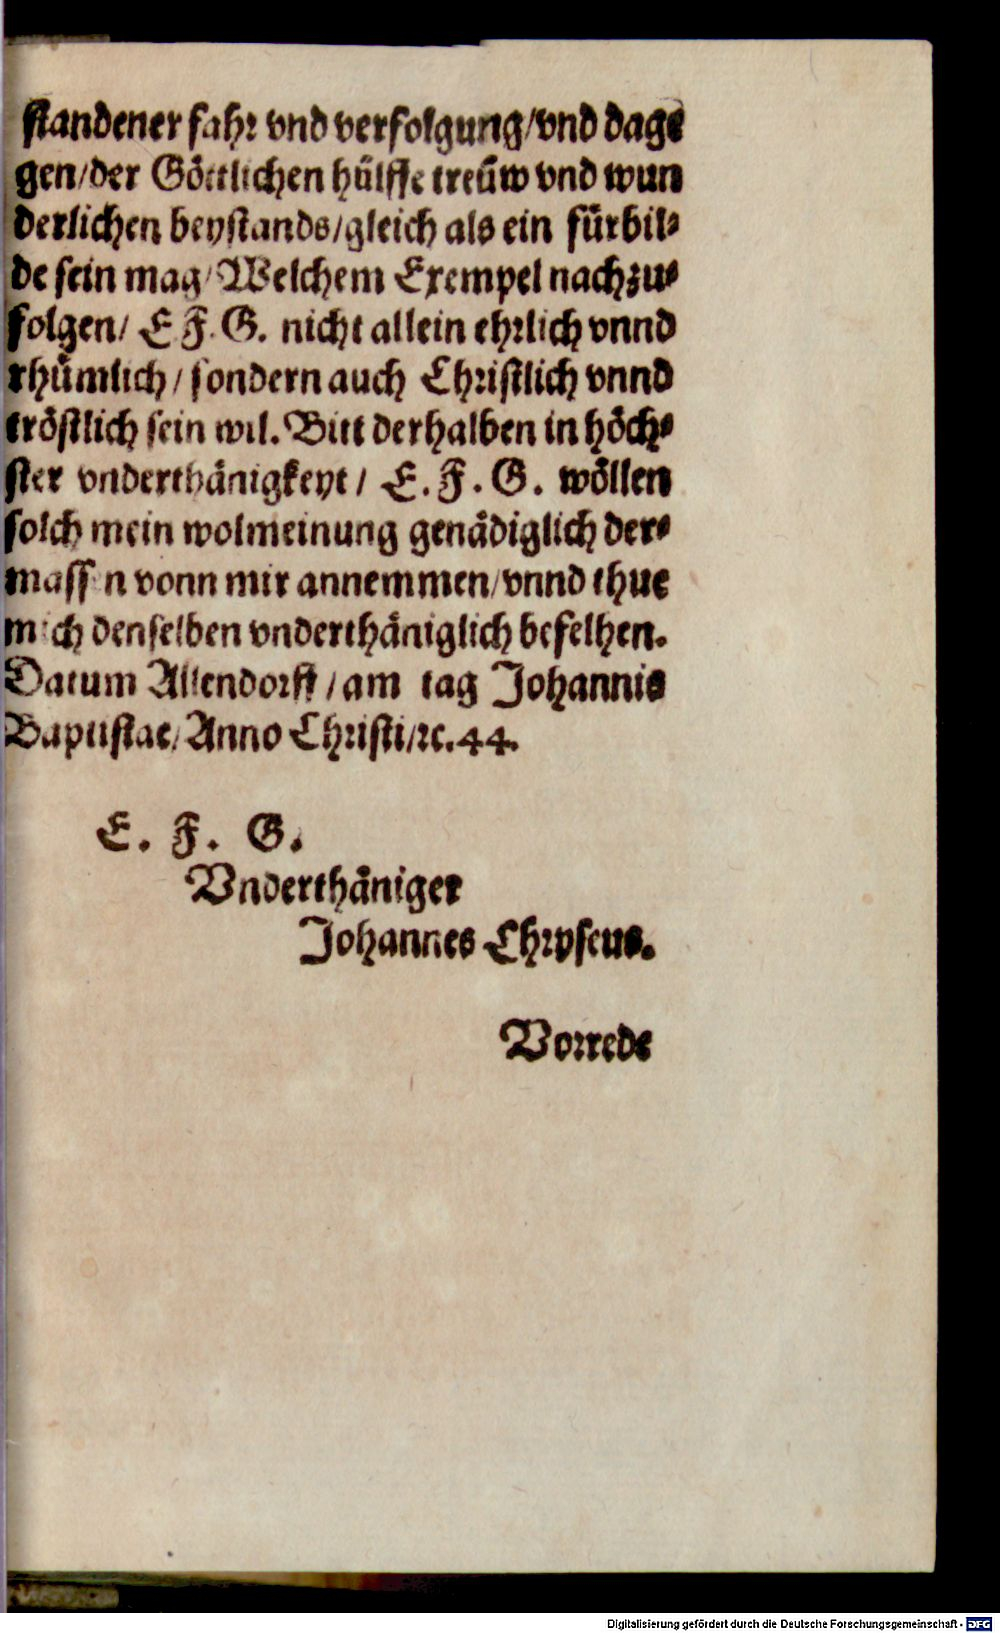 standener fahr vnd verfolgung/vnd dage
gen/der Göttlichen hülffe treüw vnd wun
derlichen beystands/gleich als ein fürbil⸗
de sein mag/Welchem Exempel nachzu⸗
folgen/ E F. G. nicht allein ehrlich vnnd
rhümlich/sondern auch Christlich vnnd
tröstlich sein wil. Bitt derhalben in höch⸗
ster vnderthänigkeyt/ E. F. G. wöllen
solch mein wolmeinung genädiglich der⸗
massen vonn mir annemmen/vnnd thue
mich denselben vnderthäniglich befelhen.
Datum Allendorff/am tag Johannis
Baptistae/Anno Christi/ꝛc.44.
E. F. G.
Vnderthäniger
Johannes Chryseus.
Vorrede
Digitalisierung gefördert durch die Deutsche Forschungsgemeinschaft - DFG